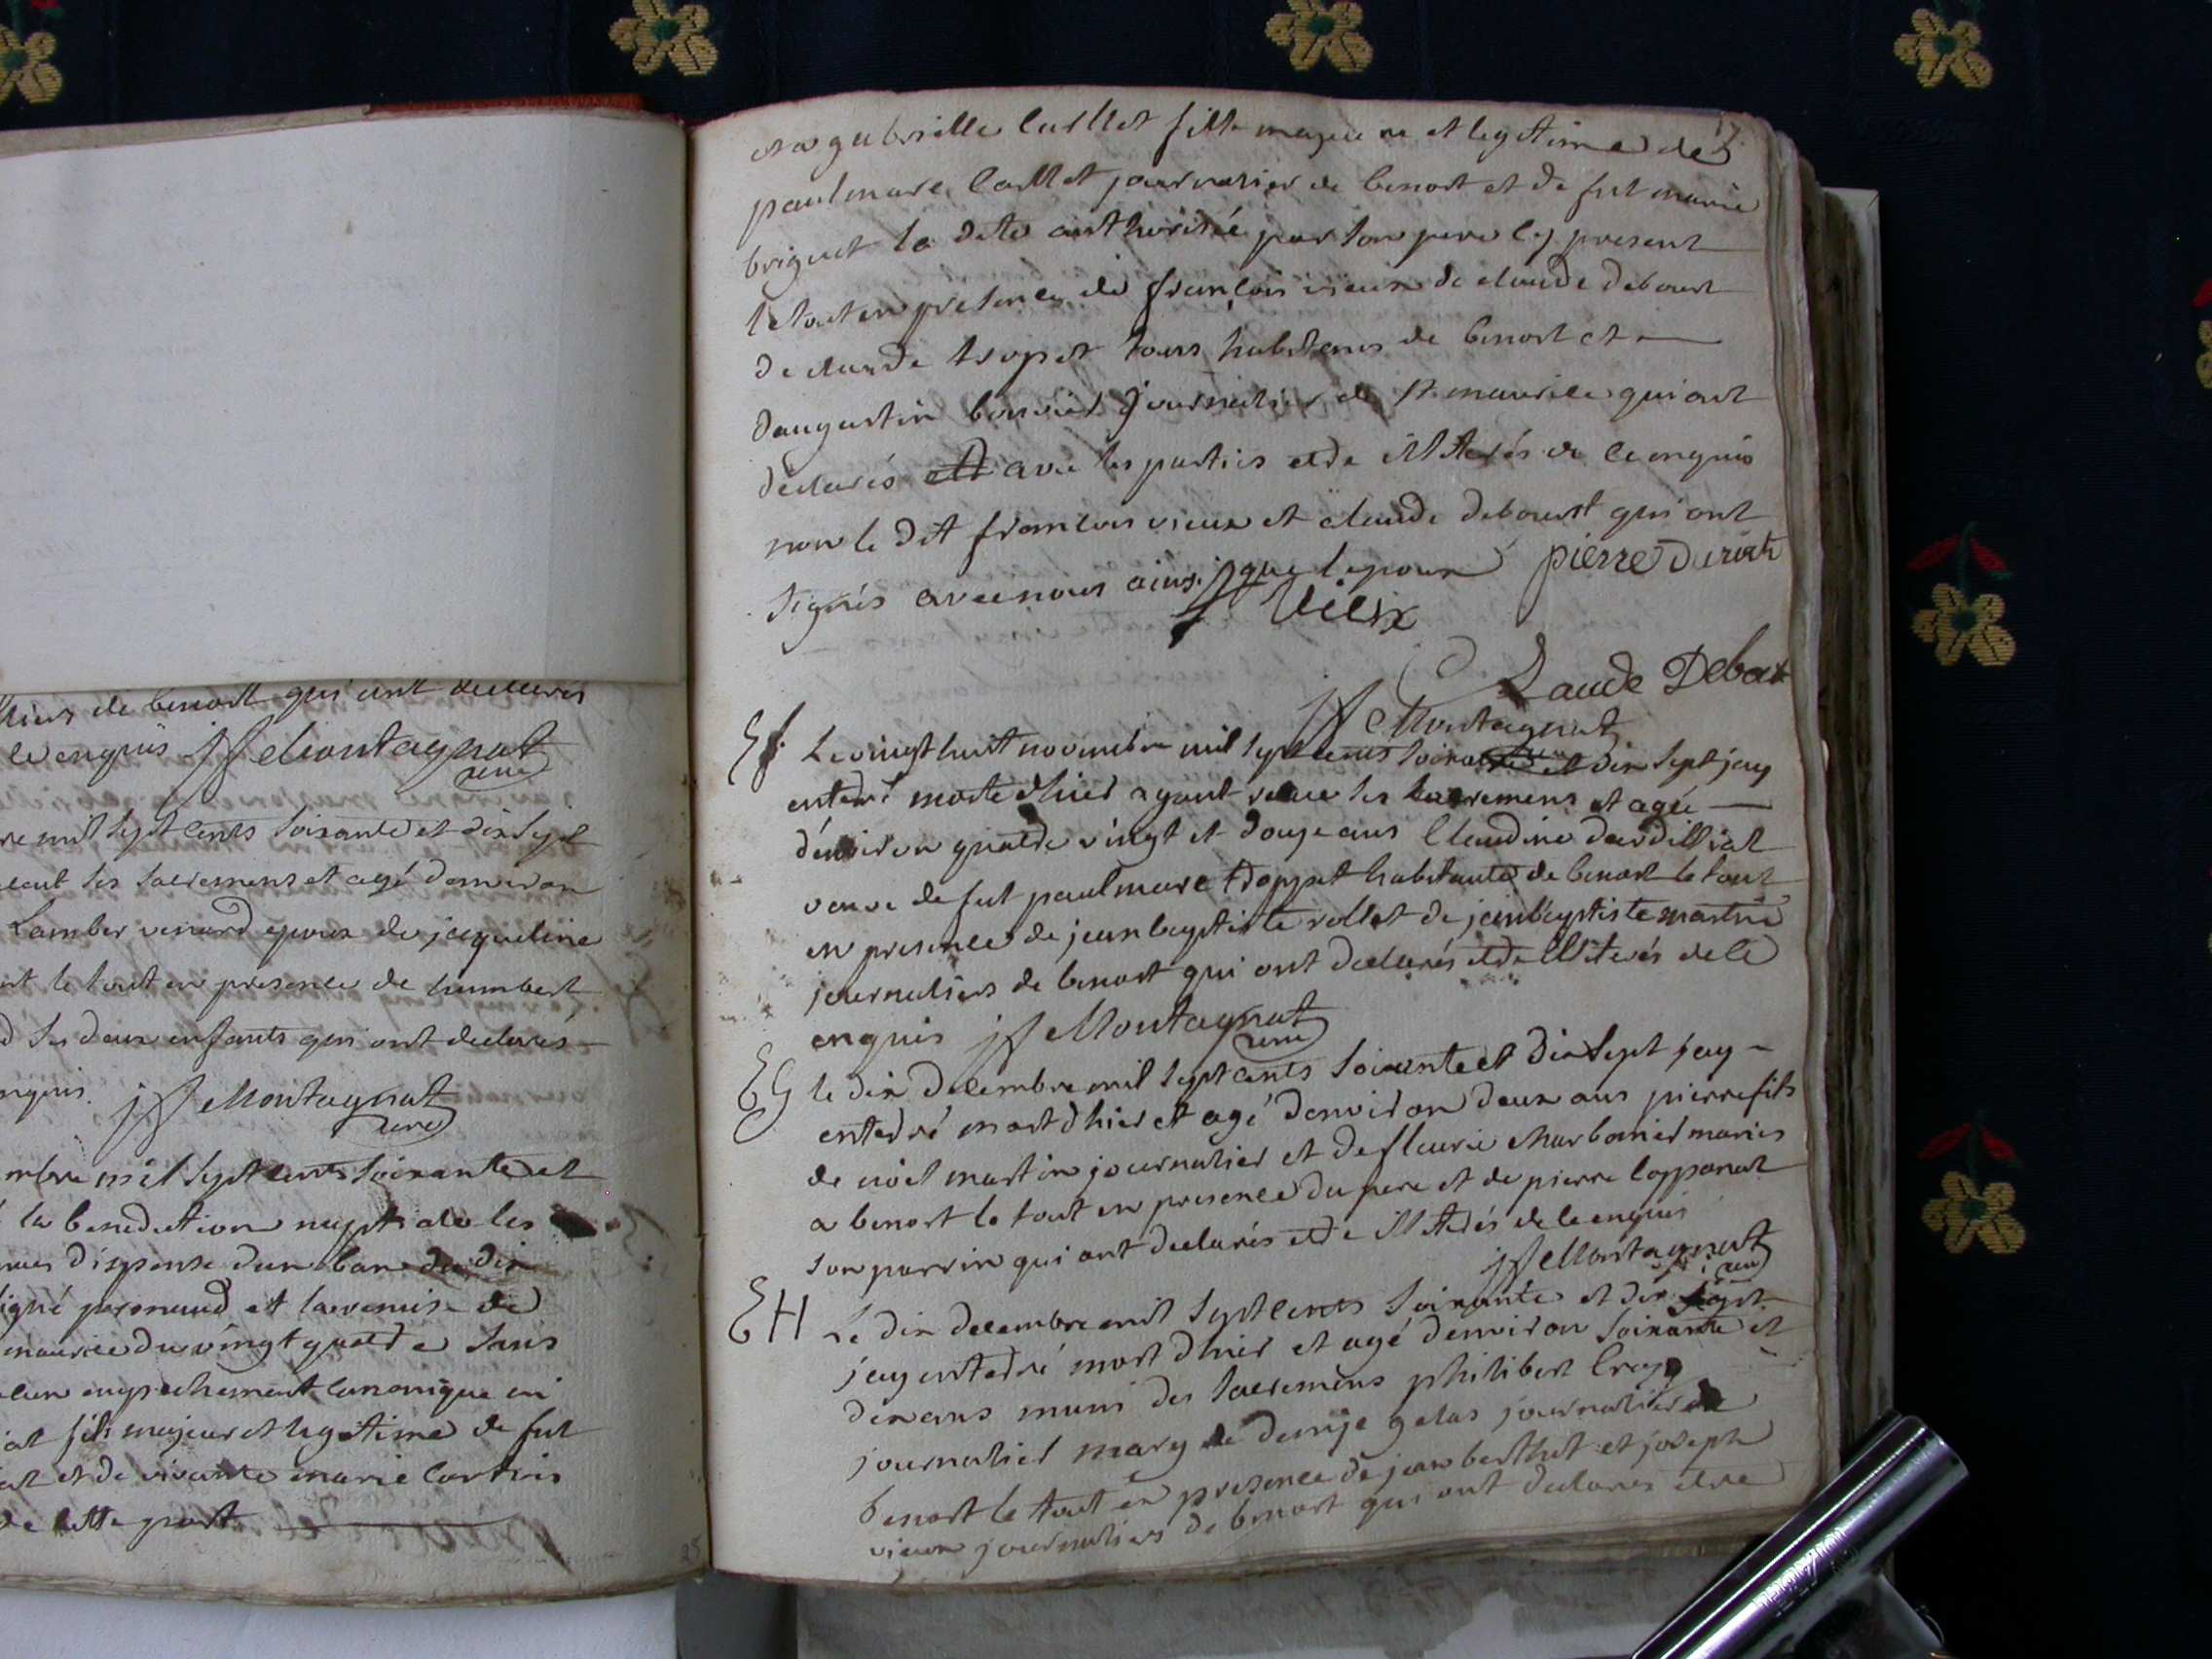 tiers de benost qui ont declarés
ce enquis jf Montagnat
curé
re mil sept cents soixante et dix sept
ses sacremens et agé denviron
Lamber venard epoux de jaqueline
le tout en presence de humbert
ses deux enfants qui ont declarés
enquis. jf Montagnat
curé
mbre mil sept cents soixante et
la benediction nuptiale les
dispense dun ban du dix
signé peronaud et la remise de
maurice du vingt quatre sans
cun empechement canonique ni
at fils majeur et legitime de fut
at et de vivante marie
de cette part
25
17
et a gabrielle caillet fille majeure et legitime de
paul marc caillet journalier de benost et de fut marie
briguet la dite authorisée par son pere cy present
le tout en presence de françois vieux de claude debourt
de claude tropet tous habitans de benost et
daugustin bouvier journalier de st maurice qui ont
declarés avec les parties etre illiterés de ce enquis
non le dit francois vieux et claude debourt qui ont
signés avec nous ainsi que lepoux pierre Durch
f Vieux
Claude Debour
jf Montagnat
Ef. Le vingt huit novembre mil sept cents soixante et dix sept jay
enterré morte dhier ayant recue les sacremens et agée
denviron quatre vingt et douze ans Claudine dardilliat
veuve de fut paul marc troppet habitante de benost le tout
en presence de jean baptiste rollet de jean baptiste martin
journaliers de benost qui ont declarés etre illiterés de ce
enquis jf Montagnat
curé
EG le dix decembre mil sept cents soixante et dix sept jay
enterré mort dhier et agé denviron deux ans pierre fils
de noel martin journalier et de fleurie charbonier mariés
a benost le tout en presence du pere et de pierre copponat
son parrin qui ont declarés etre illiterés de ce enquis
jf Montagnat
curé
EH Le dix decembre mil sept cents soixante et dix sept
jay enterré mort dhier et agé denviron soixante et
dix ans muni des sacremens philibert
journalier mary de denise gelas journalier de
benost le tout en presence de jean berthet et joseph
vieux journaliers de benost qui ont declarés etre